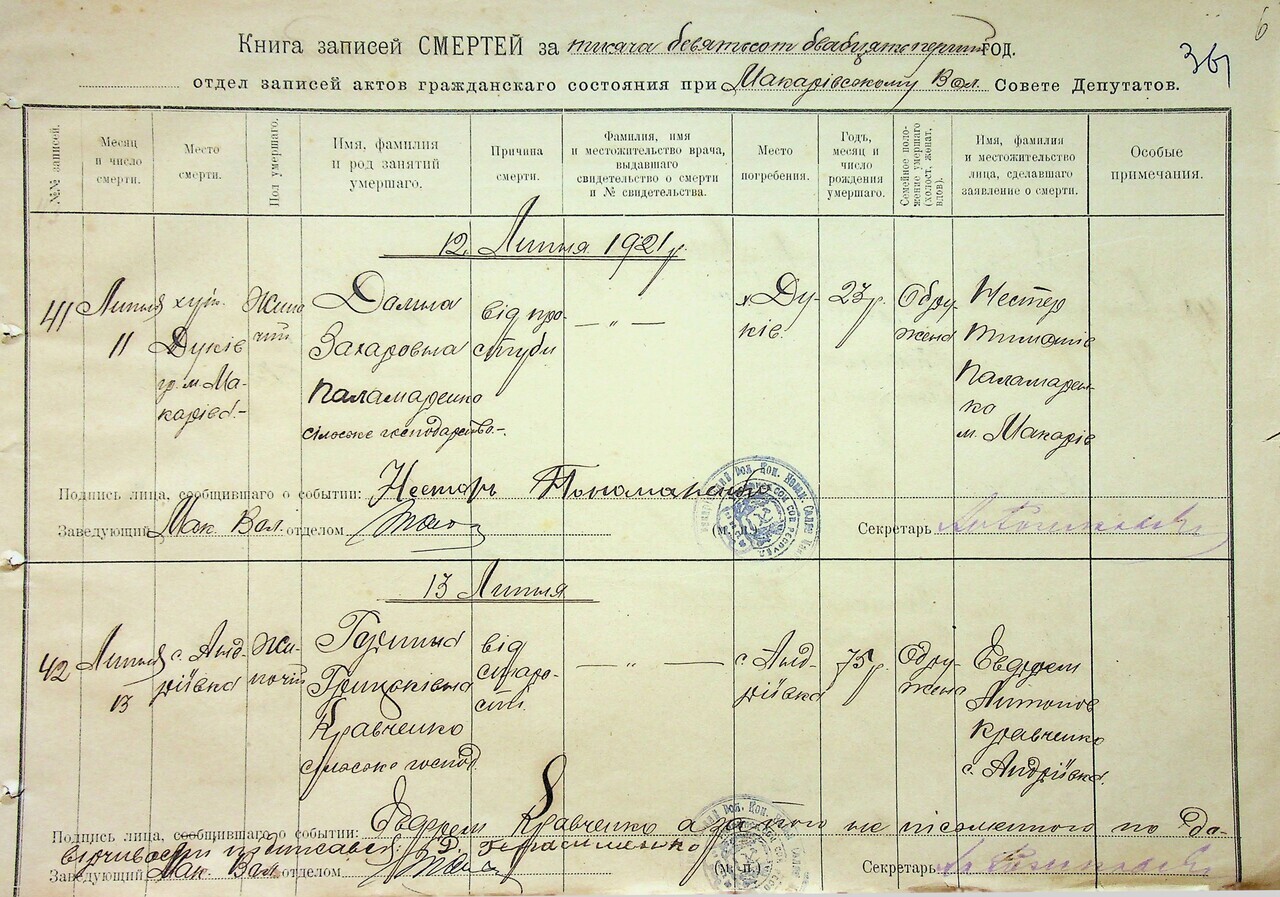 6
Книга записей СМЕРТЕЙ за тисяча девятьсот двадцять перший год.
361
отдел записей актов гражданскаго состояния при Макарівському Вол. Совете Депутатов.
№№ записей.
Месяц и число смерти.
Место смерти.
Пол умершаго.
Имя, фамилия и род занятий умершаго.
Причина смерти.
Фамилия, имя и местожительство врача, выдавшаго свидетельство о смерти и № свидетельства.
Место погребения.
Годъ, месяц и число рождения умершаго.
Семейное положение умершаго (холост, женат, вдов).
Имя, фамилия и местожительство лица, сделавшаго заявление о смерти.
Особые примечания.
12 Липня 1921 р.
41
Липня
11
хут.
Дуків
гр. м. Ма-
карів.-
Жино
чий
Захаровна
Паламаренко
сільське господарство-.
від про-
студи
— „ —
х Ду-
ків.
23 р.
Обру
жена
Нестер
Тимошів
Паламарен-
ко
м. Макарів
Подпись лица, сообщившаго о событии: Несторъ Пономаренко
Заведующий Мак. Вол. отделом
(м. п.)
Секретарь
13 Липня
42
Липня
13
с. Анд-
ріївка
Жи-
ночій
Грицьківна
Кравченко
сільське господ.
від
старо-
сті.
— „ —
с. Анд-
ріївка
75 р.
Одру-
жена
Евдрем
Антонов
Кравченко
с. Андріївка.
Подпись лица, сообщившаго о событии: Евдрем Кравченко а за його не письменного по до-
вірчивости підписався Д. Герасименко
Заведующий Мак. Вол. отделом
(м. п.)
Секретарь